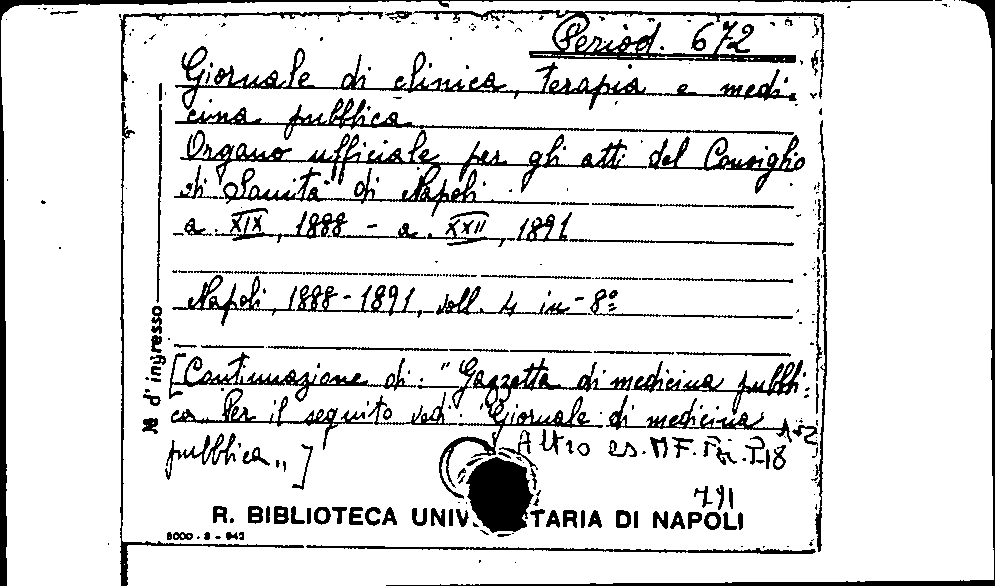 Period. 672
Giornale di clinica, terapia e medi-
cina pubblica.
Organo ufficiale per gli atti del Consiglio
di Sanità di Napoli.
a. XIX, 1888 - a. XXII, 1891
Napoli, 1888-1891, voll. 4 in-8º
[Continuazione di: "Gazzetta di medicina pubbli-
ca„ Per il seguito vedi: "Giornale di medicina
pubblica„]
Altro es. MF. P.18
791
№ d' ingresso
R. BIBLIOTECA UNIV TARIA DI NAPOLI